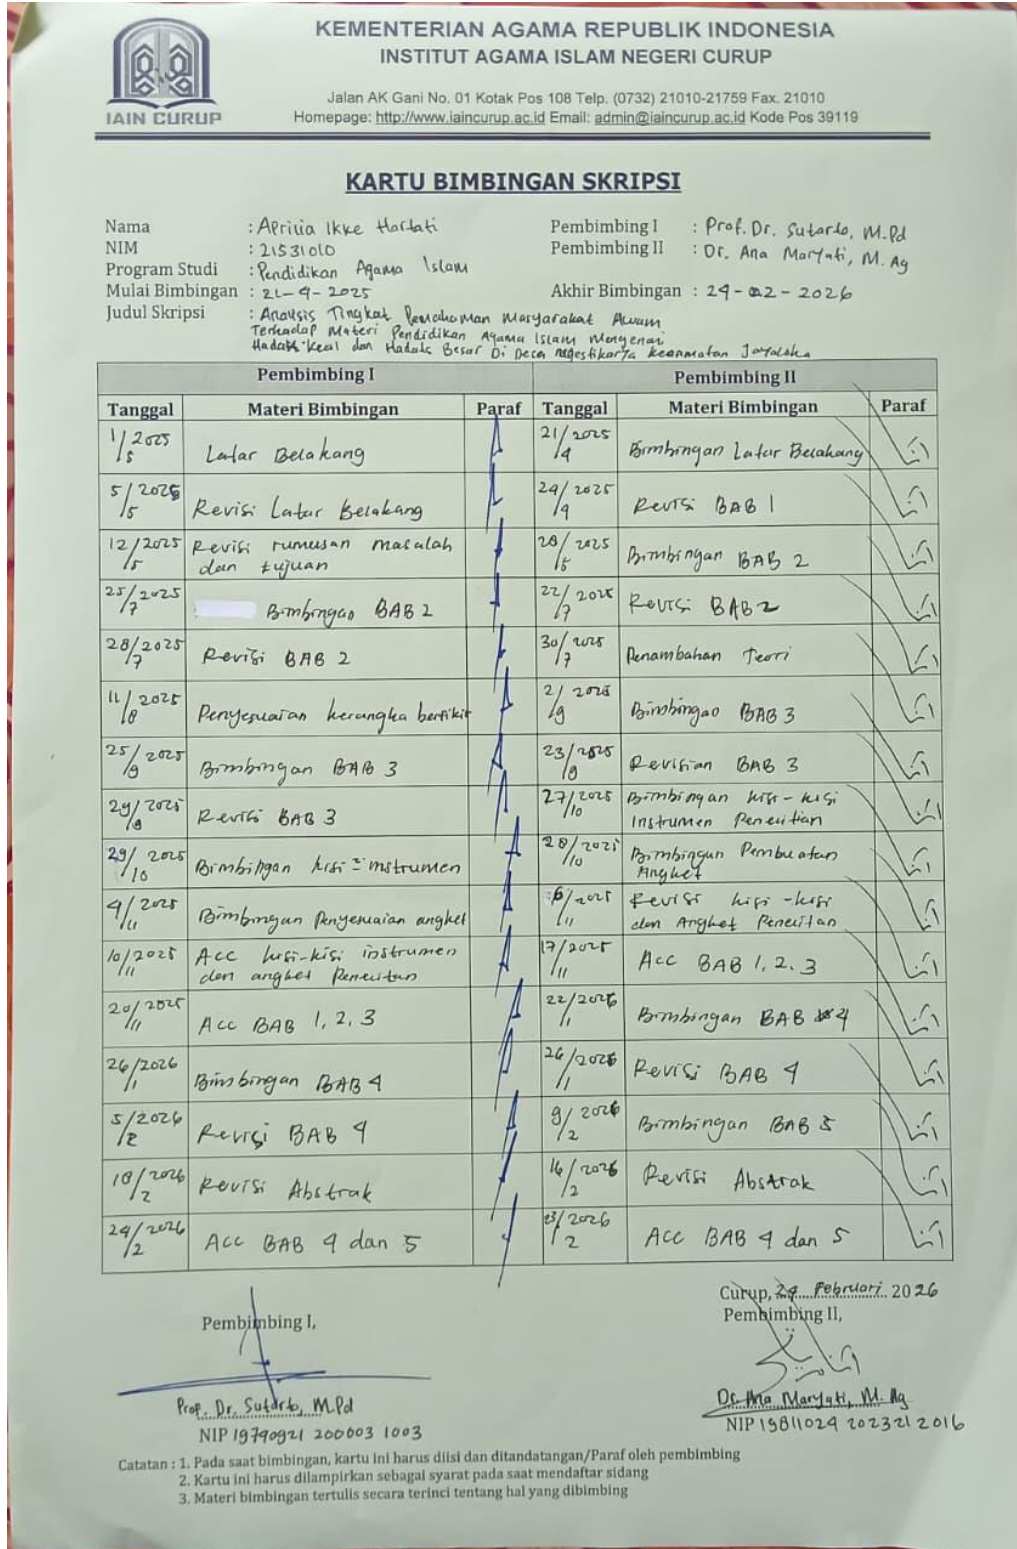 KEMENTERIAN AGAMA REPUBLIK INDONESIA
INSTITUT AGAMA ISLAM NEGERI CURUP
Jalan AK Gani No. 01 Kotak Pos 108 Telp. (0732) 21010-21759 Fax. 21010
Homepage: http://www.iaincurup.ac.id Email: admin@iaincurup.ac.id Kode Pos 39119
IAIN CURUP
KARTU BIMBINGAN SKRIPSI
Nama : Aprilia Ikke Hartati
NIM : 21531010
Program Studi : Pendidikan Agama Islam
Mulai Bimbingan : 21-4-2025
Judul Skripsi : Analisis Tingkat Pemahaman Masyarakat Awam
Terhadap Materi Pendidikan Agama Islam Mengenai
Hadats Kecil dan Hadats Besar Di Desa
Pembimbing I : Prof. Dr. Sutarto, M.Pd
Pembimbing II : Dr. Ana Maryati, M. Ag
Akhir Bimbingan : 24-02-2026
Pembimbing I Pembimbing II
Tanggal Materi Bimbingan Paraf Tanggal Materi Bimbingan Paraf
1/5 2025 Latar Belakang 21/4 2025 Bimbingan Latar Belakang
5/5 2025 Revisi Latar Belakang 24/4 2025 Revisi BAB 1
12/5 2025 Revisi rumusan masalah 28/5 2025 Bimbingan BAB 2
dan tujuan
25/7 2025 Bimbingan BAB 2 22/7 2025 Revisi BAB 2
28/7 2025 Revisi BAB 2 30/7 2025 Penambahan Teori
11/8 2025 Penyesuaian kerangka berfikir 2/9 2025 Bimbingan BAB 3
25/9 2025 Bimbingan BAB 3 23/9 2025 Revisian BAB 3
29/9 2025 Revisi BAB 3 27/10 2025 Bimbingan kisi-kisi
Instrumen Penelitian
29/10 2025 Bimbingan kisi² instrumen 28/10 2025 Bimbingan Pembuatan
Angket
4/11 2025 Bimbingan Penyesuaian angket 6/11 2025 Revisi kisi-kisi
dan Angket Penelitan
10/11 2025 Acc kisi-kisi instrumen 17/11 2025 Acc BAB 1, 2, 3
dan angket Penelitan
20/11 2025 Acc BAB 1, 2, 3 22/1 2026 Bimbingan BAB 4
26/1 2026 Bimbingan BAB 4 26/1 2026 Revisi BAB 4
5/2 2026 Revisi BAB 4 9/2 2026 Bimbingan BAB 5
18/2 2026 Revisi Abstrak 16/2 2026 Revisi Abstrak
24/2 2026 Acc BAB 4 dan 5 23/2 2026 Acc BAB 4 dan 5
Curup, 24 Februari 2026
Pembimbing I, Pembimbing II,
Prof. Dr. Sutarto, M.Pd Dr. Ana Maryati, M. Ag
NIP 19740921 200003 1003 NIP 19811024 202321 2016
Catatan : 1. Pada saat bimbingan, kartu ini harus diisi dan ditandatangan/Paraf oleh pembimbing
2. Kartu ini harus dilampirkan sebagai syarat pada saat mendaftar sidang
3. Materi bimbingan tertulis secara terinci tentang hal yang dibimbing